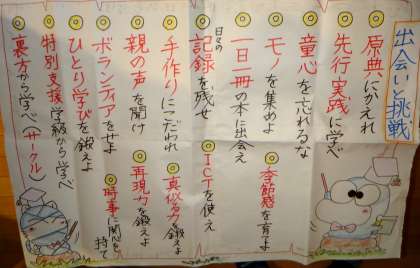 出会いと挑戦
原典にかえれ
先行実践に学べ
童心を忘れるな
モノを集めよ
季節感を育てよ
一日一冊の本に出会え
日々の
記録を残せ
ICTを使え
手作りにこだわれ
真似る力を鍛えよ
親の声を聞け
再現力を鍛えよ
ボランティアをせよ
時事に関心を持て
ひとり学びを鍛えよ
特別支援学級から学べ
裏方から学べ(サークル)